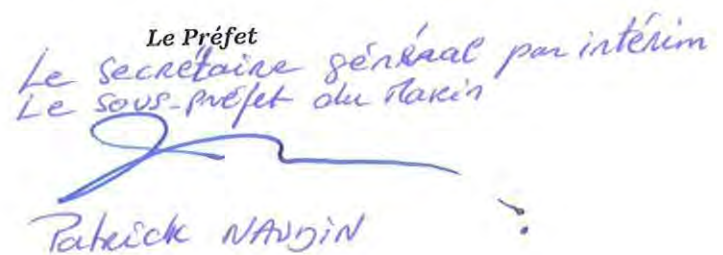 Le Préfet
Le Secrétaire général par intérim
Le sous-préfet du Marin
Patrick NAUDIN